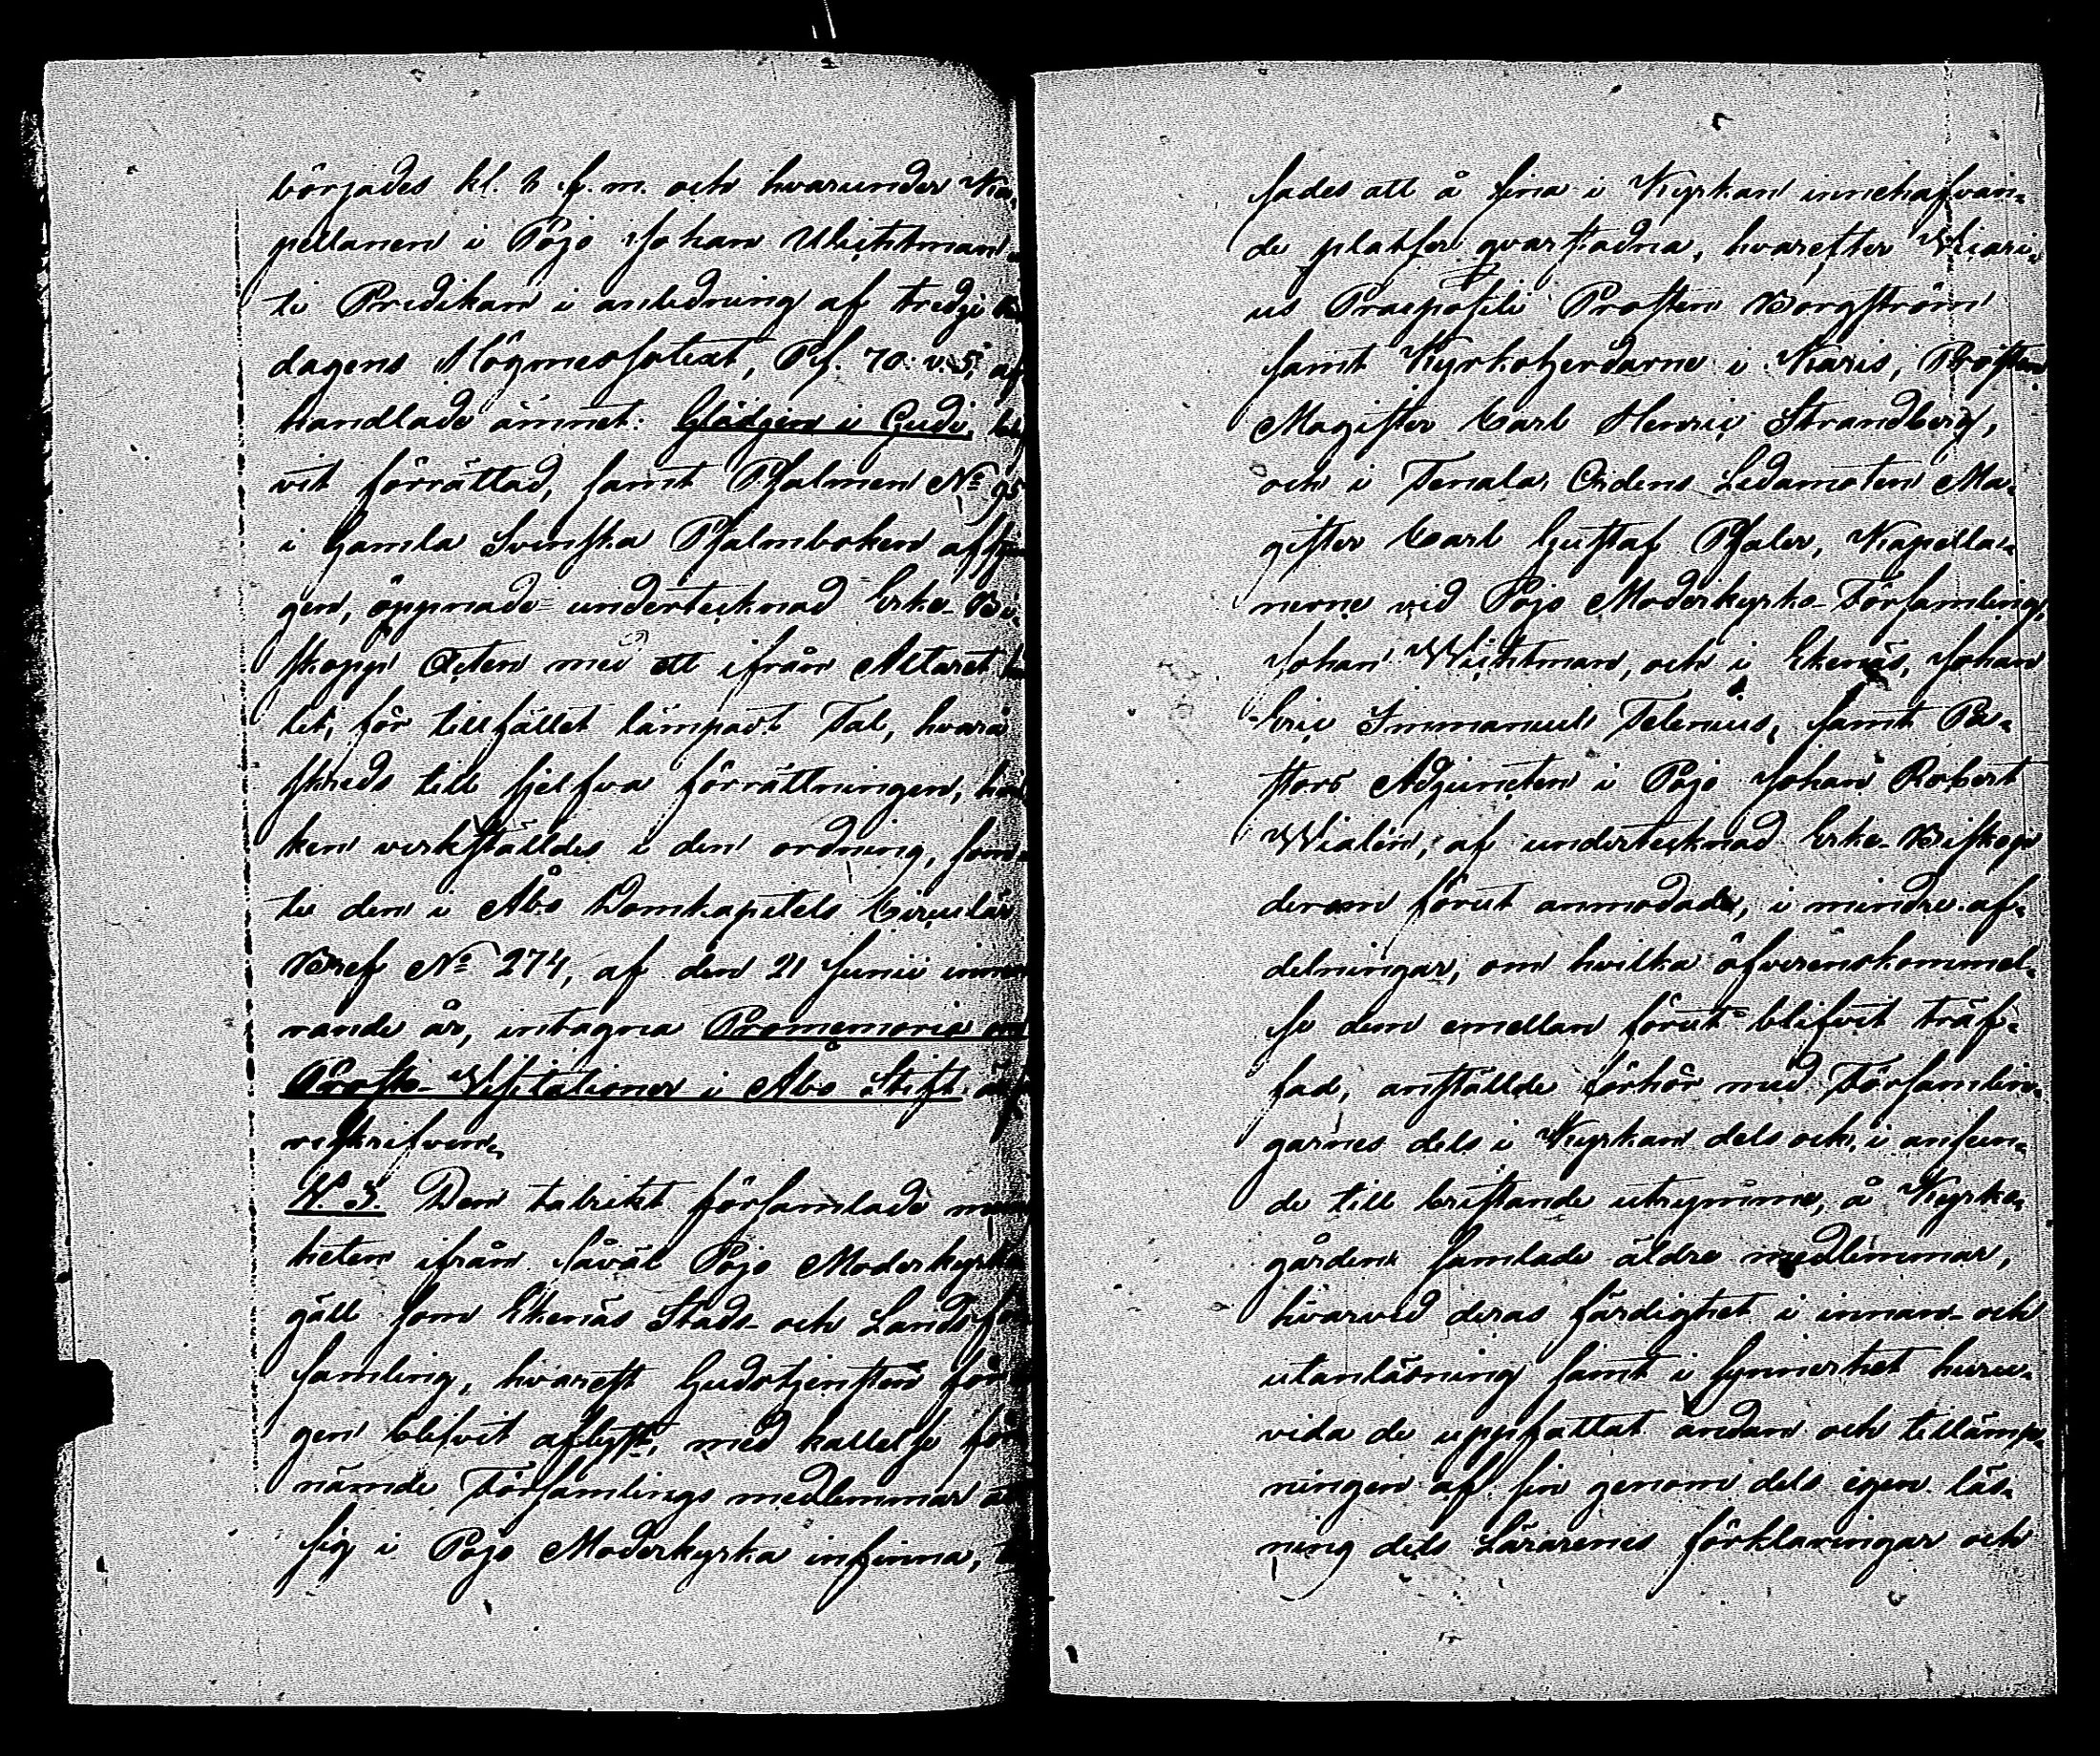 börjades kl. 8 f. m. och hvarunder Ka-
pellanen i Pojo Johan Wichtman
te Predikan i anledning af tredje
dagens Högmesso text, Ps. 70: v. 5, af
handlade ämnet: Glädjen i Gudi, bli
vit förrättad, samt Psalmen No 95
i Gamla Svenska Psalmboken afsjun
gen, öppnade undertecknad Erke-Bi-
skopp Acten med ett ifrån Altaret
let, för tillfället lämpadt Tal, hvarå
skreds till sjelfva förrättningen, hvil
ken verkställdes i den ordning, som
te den i Åbo Domkapitels Circulär
Bref No 274, af den 21 Junii inne
rande år, intagna Promemoria om
Prosts-Visitationer i Åbo Stift är
reskrifven.
§. 3. Den talrikt församlade men
heten ifrån såväl Pojo Moderkyrko
gäll som Ekenäs Stads- och Lands för
samling, hvarest Gudstjensten för
gen blifvit aflyst, med kallelse för
nämde Församlings medlemmar at
sig i Pojo Moderkyrka infinna,
sades att å sina i Kyrkan innehafvan-
de platser qvarstadna, hvarefter Vicari-
us Praepositi Prosten Borgström
samt Kyrkoherdarne i Karis, Prosten
Magister Carl Henric Strandberg,
och i Tenala Ordens Ledamoten Ma-
gister Carl Gustaf Pfaler, Kapella-
nerne vid Pojo Moderkyrko-Församling,
Johan Wichtman, och i Ekenäs, Johan
Eric Immanuel Telenius, samt Pa-
stors Adjuncten i Pojo Johan Robert
Wialén, af undertecknad Erke-Biskop
derom förut anmodade, i mindre af-
delningar, om hvilka öfverenskommel-
se dem emellan förut blifvit träf-
fad, anställde förhör med Församlin-
garnes dels i Kyrkan dels och, i anseen-
de till bristande utrymme, å Kyrko-
gården samlade äldre medlemmar,
hvarvid deras färdighet i innan- och
utanläsning samt i synnerhet huru-
vida de uppfattat andan och tillämp-
ningen af sin genom dels egen läs-
ning dels Lärarenes förklaringar och